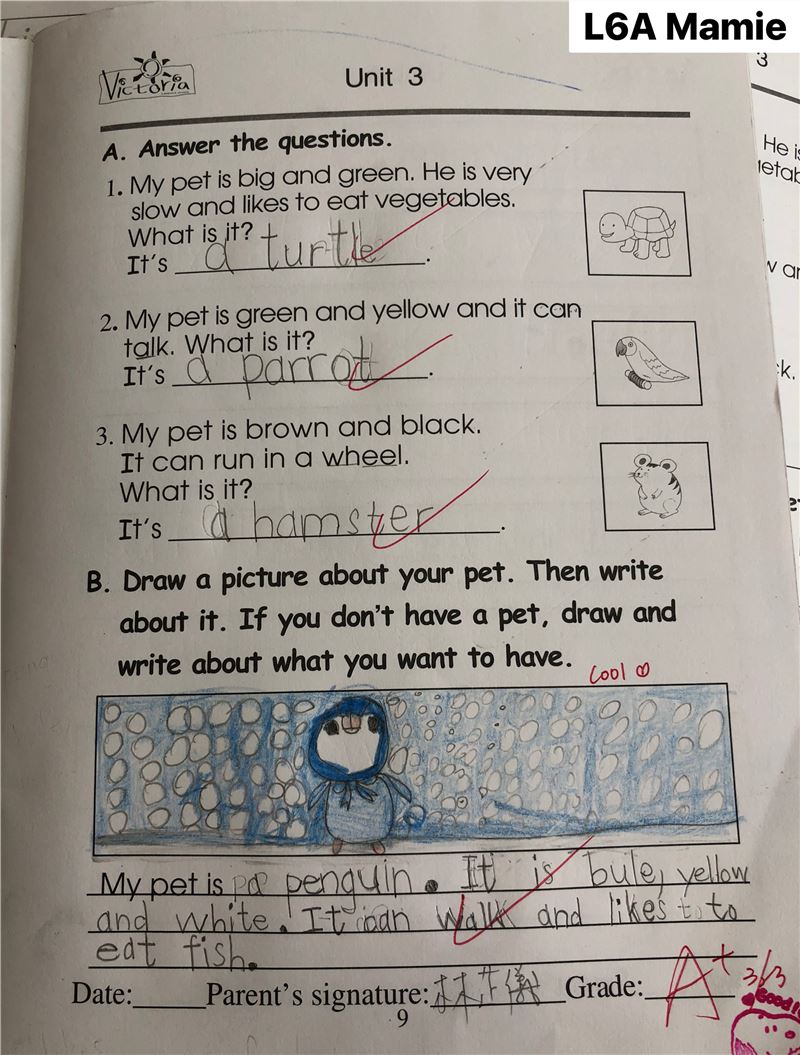 L6A Mamie
Victoria
Unit 3
3
A. Answer the questions.
1. My pet is big and green. He is very
slow and likes to eat vegetables.
What is it?
It's a turtle.
2. My pet is green and yellow and it can
talk. What is it?
It's a parrot.
3. My pet is brown and black.
It can run in a wheel.
What is it?
It's a hamster.
B. Draw a picture about your pet. Then write
about it. If you don't have a pet, draw and
write about what you want to have.
Cool
My pet is a penguin. It is bule, yellow
and white. It can walk and likes to
eat fish.
Date: Parent's signature: Grade: A+ 3/3
9